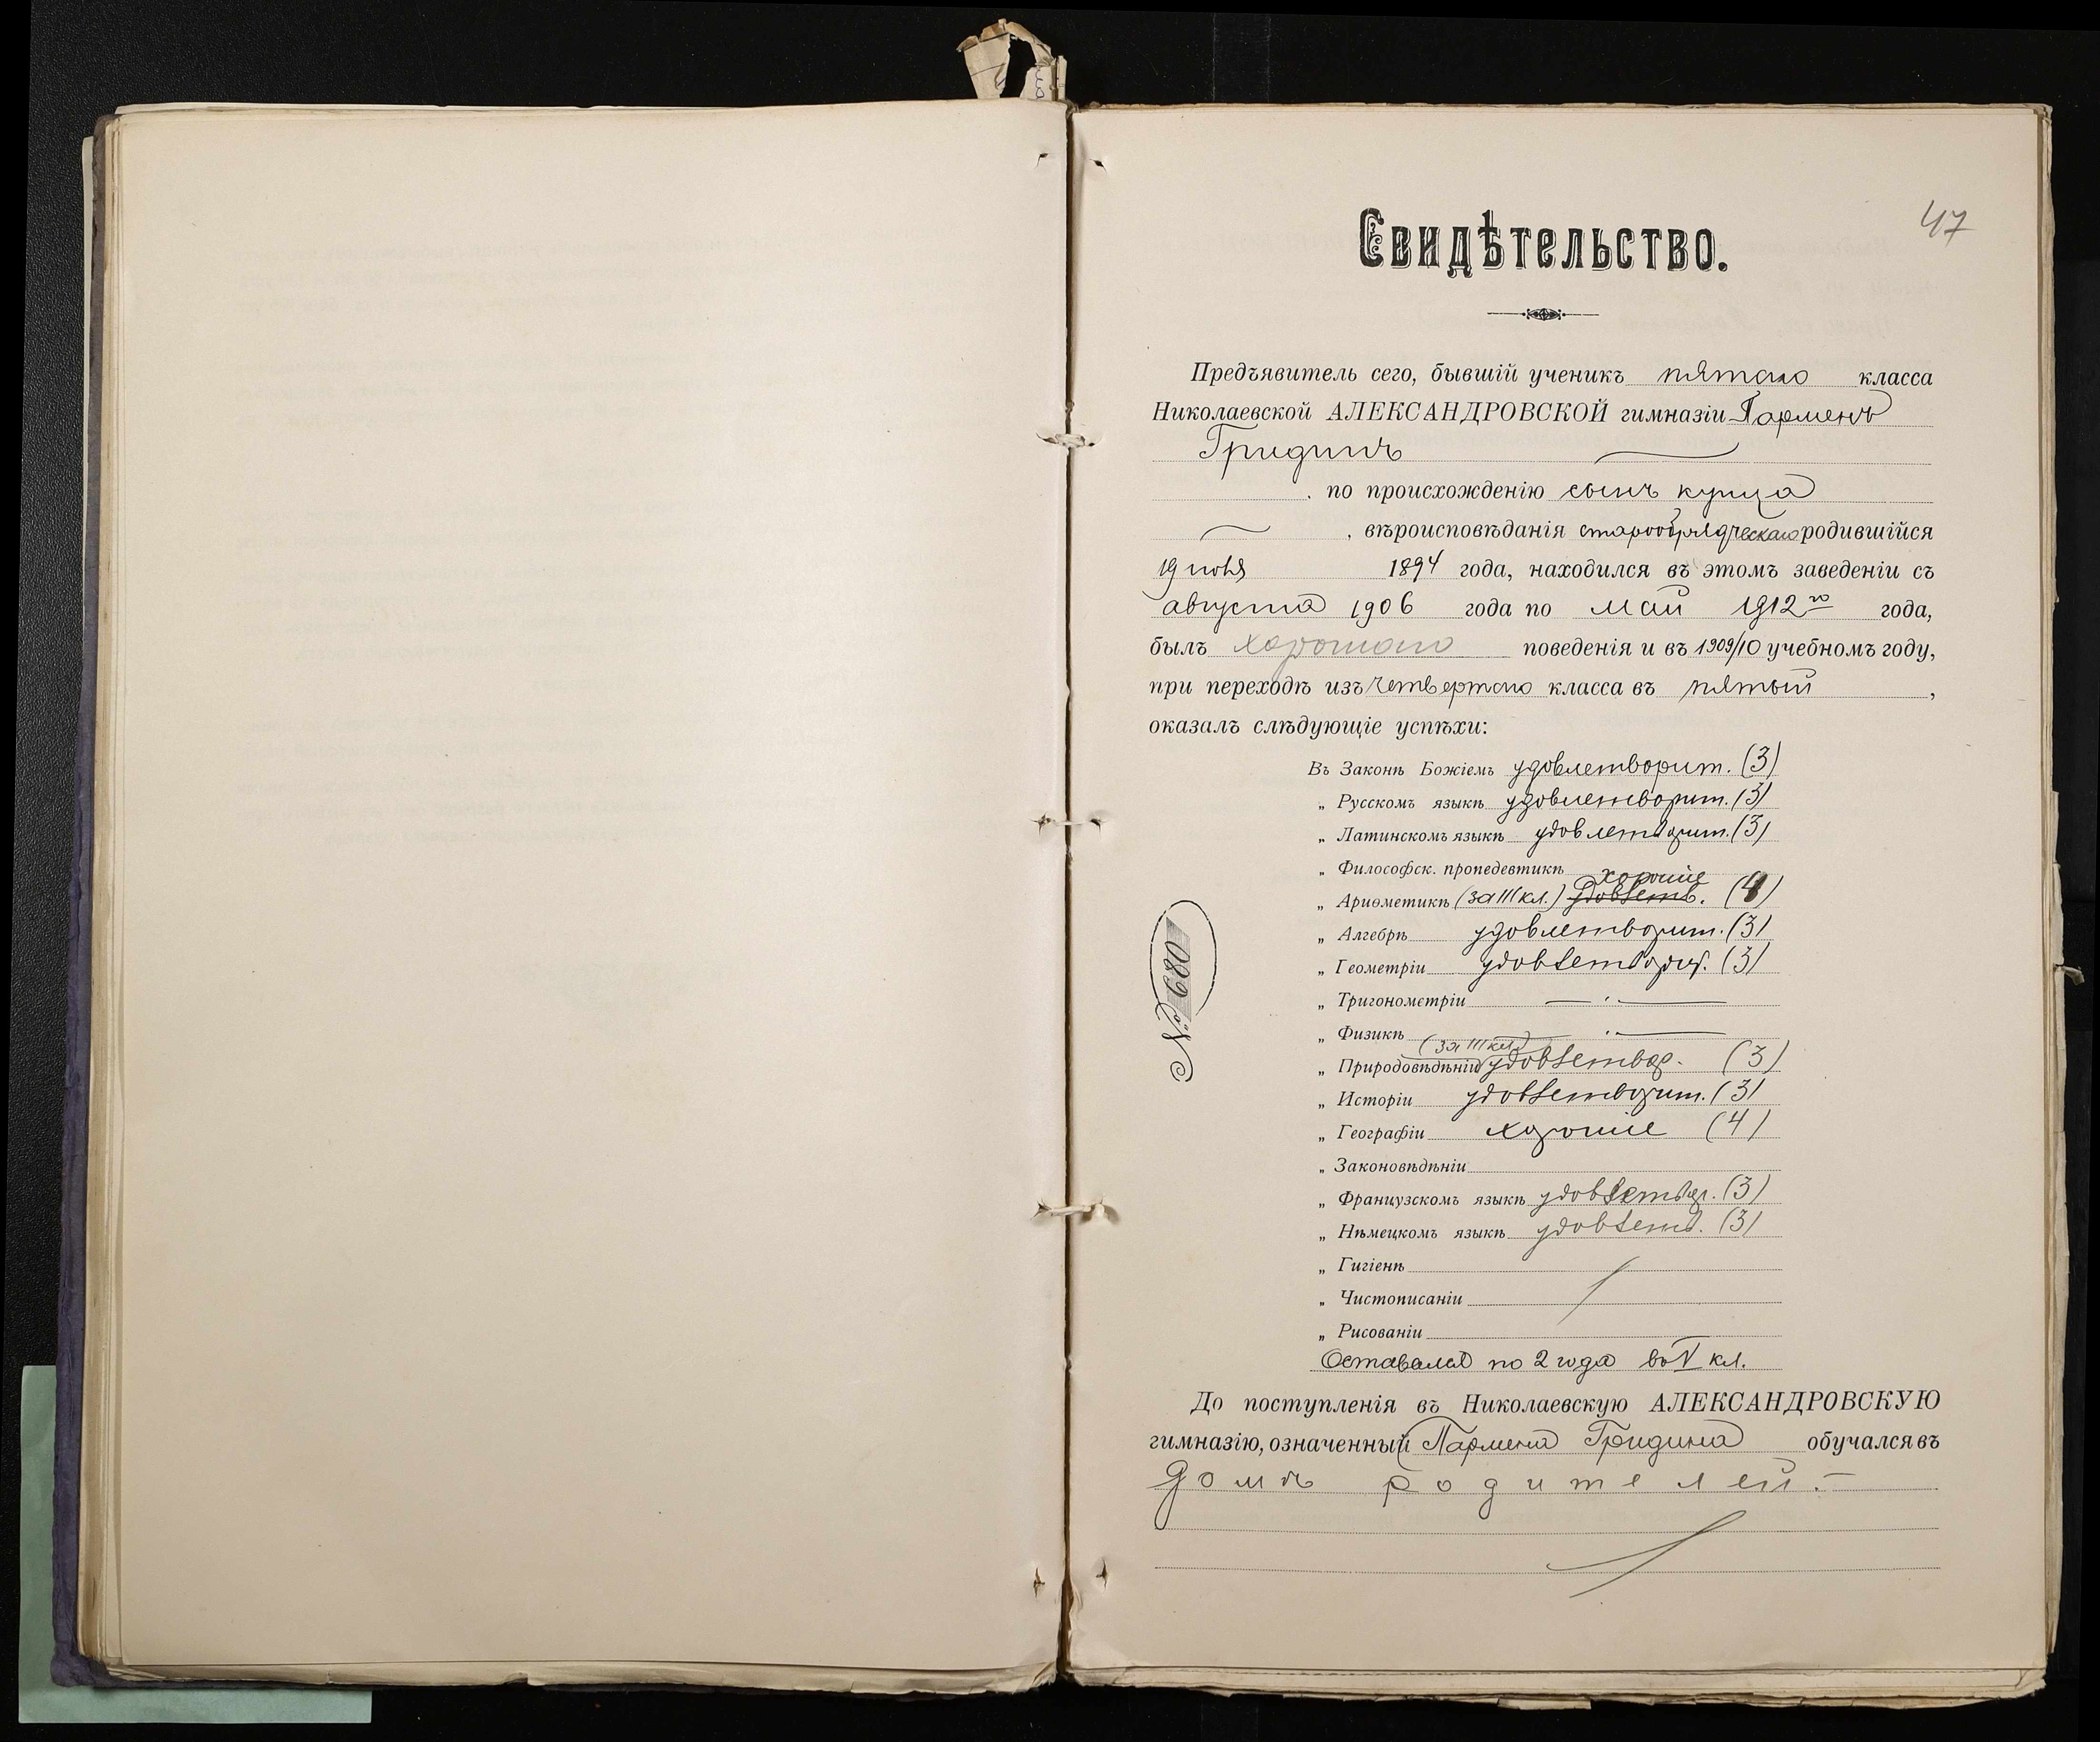 47
Свидѣтельство.
Предъявитель сего, бывшій ученикъ пятаго класса
Николаевской АЛЕКСАНДРОВСКОЙ гимназіи Парменъ
Гридинъ
по происхожденію сынъ купца
, вѣроисповѣданія старообрядческаго родившійся
19 1894 года, находился въ этомъ заведеніи съ
августа 1906 года по май 1912 го года,
былъ хорошаго поведенія и въ 1909/10 учебномъ году,
при переходѣ изъ четвертаго класса въ пятый ,
оказалъ слѣдующіе успѣхи:
Въ Законѣ Божіемъ удовлетворит. (3)
„ Русскомъ языкѣ удовлетворит. (3)
„ Латинскомъ языкѣ удовлетворит. (3)
„ Философск. пропедевтикѣ
хорошіе
„ Ариѳметикѣ (за III кл.) удовлетв. (4)
„ Алгебрѣ удовлетворит. (3)
„ Геометріи удовлетворит. (3)
„ Тригонометріи
„ Физикѣ
(за III кл.)
„ Природовѣдѣніи удовлетвор. (3)
„ Исторіи удовлетворит. (3)
„ Географіи хорошіе (4)
„ Законовѣдѣніи
„ Французскомъ языкѣ удовлетвор. (3)
„ Нѣмецкомъ языкѣ удовлетв. (3)
„ Гигіенѣ
„ Чистописаніи
„ Рисованіи
Оставался по 2 года въ V кл.
№ 680
До поступленія въ Николаевскую АЛЕКСАНДРОВСКУЮ
гимназію, означенный Пармена Гридина обучался въ
домѣ родителей.—